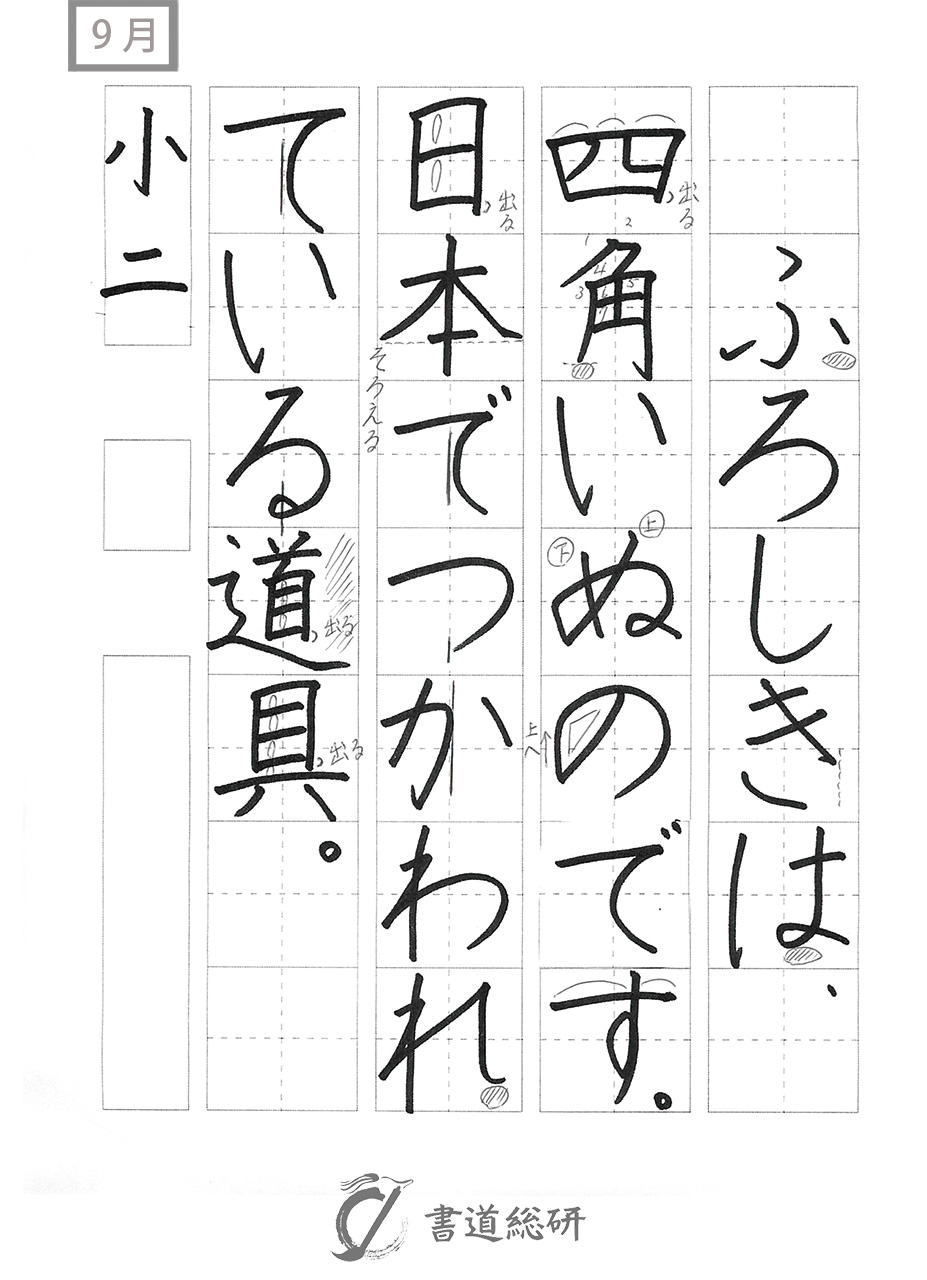 9月
ふろしきは、
四角いぬのです。
日本でつかわれ
ている道具。
小二
出る
1
2
3
4
5
6
7
上
下
上へ
出る
そろえる
出る
出る
書道総研